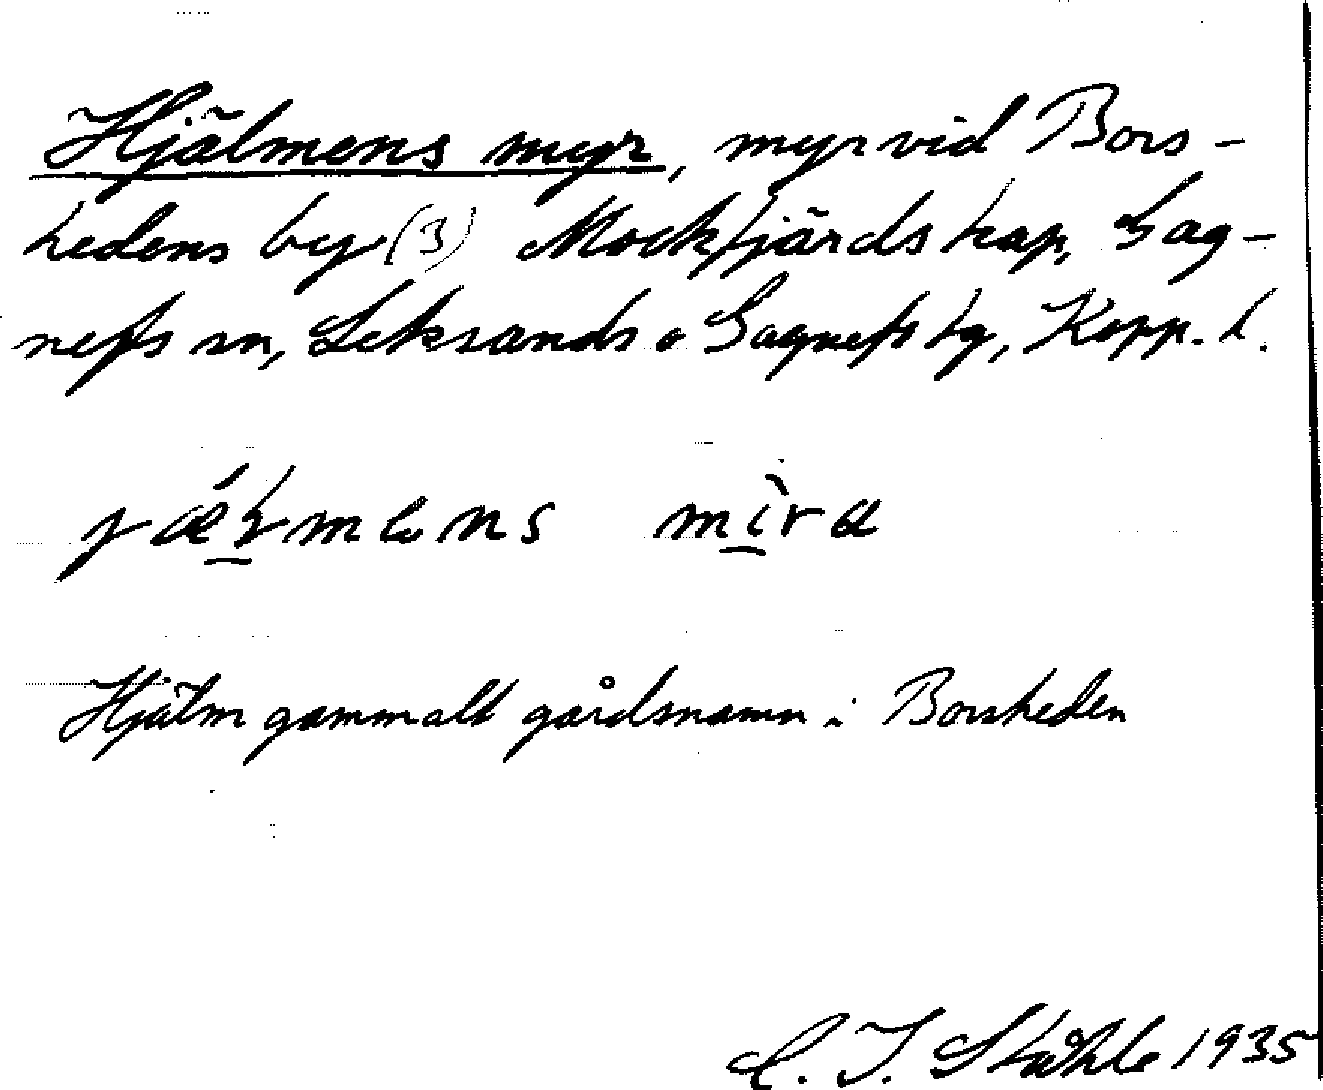 Hjälmens myr, myr vid Bors-
hedens by (3) Mockfjärds kap, Gag-
nefs sn, Leksands o Gagnefs tg, Kopp. l.
mı̀ra
Hjälm gammalt gårdsnamn i Borsheden
C. I. Ståhle 1935